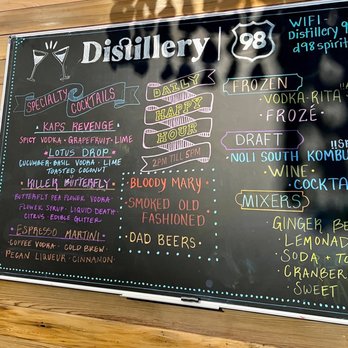 Distillery | 98
WIFI -
Distillery 9
d98spirit
SPECIALTY COCKTAILS
• KAPS REVENGE •
SPICY VODKA • GRAPEFRUIT • LIME
• LOTUS DROP •
CUCUMBER-BASIL VODKA • LIME
TOASTED COCONUT
• KILLER BUTTERFLY •
BUTTERFLY PEA FLOWER VODKA •
FLOWER SYRUP • LIQUID DEATH •
CITRUS EDIBLE GLITTER
• ESPRESSO MARTINI •
COFFEE VODKA • COLD BREW •
PECAN LIQUEUR • CINNAMON
DAILY
HAPPY
HOUR
2PM TILL 5PM
BLOODY MARY •
SMOKED OLD
FASHIONED
• DAD BEERS •
FROZEN
• VODKA-RITA
• FROZÉ •
DRAFT
NOLI SOUTH KOMBU
• WINE •
COCKTA
MIXERS
GINGER BE
LEMONAD
SODA + TO
CRANBER
SWEET